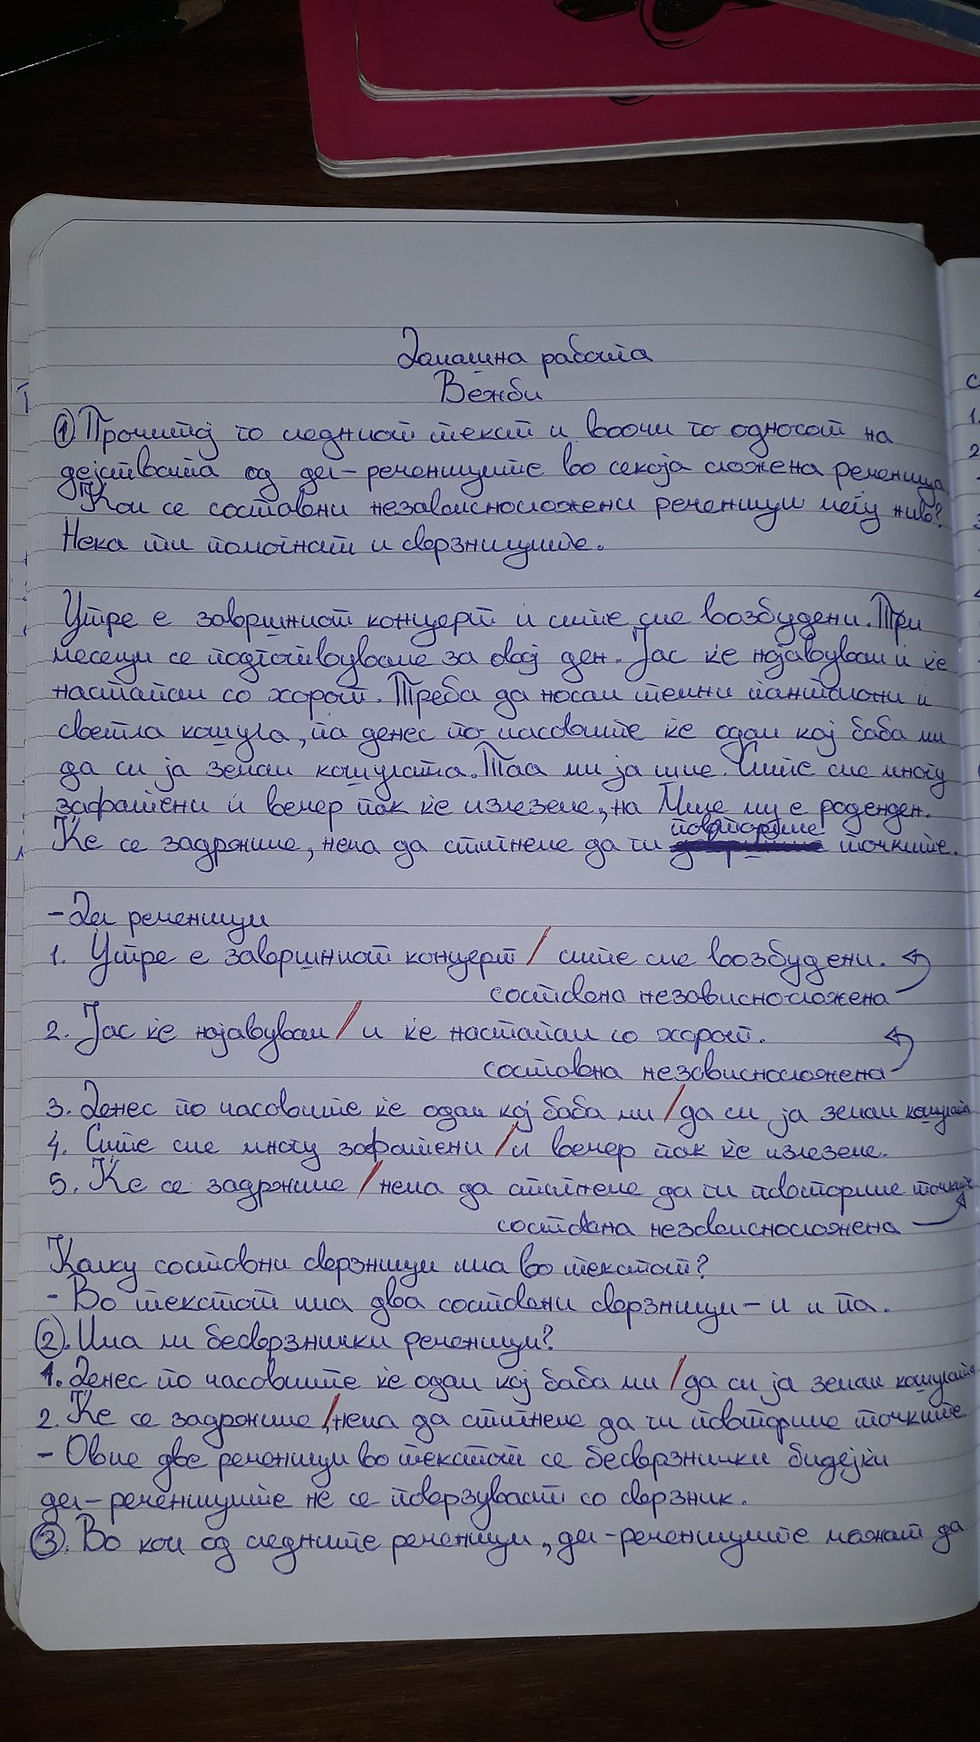 Домашна работа
Вежби
① Прочитај го следниот текст и воочи го односот на
дејствата од дел-речениците во секоја сложена реченица.
Кои се составни независносложени реченици меѓу нив?
Нека ти помогнат и сврзниците.
Утре е завршниот концерт и сите сме возбудени. Три
месеци се подготвувавме за овој ден. Јас ќе најавувам и ќе
настапам со хорот. Треба да носам темни панталони и
светла кошула, па денес по часовите ќе одам кај баба ми
да си ја земам кошулата. Таа ми ја шие. Сите сме многу
зафатени и вечер пак ќе излеземе, на Миле му е роденден.
Ќе се задржиме, нема да стигнеме да ги повториме точките.
- Дел реченици
1. Утре е завршниот концерт / сите сме возбудени.
составна независносложена
2. Јас ќе најавувам / и ќе настапам со хорот.
составна независносложена
3. Денес по часовите ќе одам кај баба ми / да си ја земам кошулата
4. Сите сме многу зафатени / и вечер пак ќе излеземе.
5. Ќе се задржиме / нема да стигнеме да ги повториме точките
составна независносложена
Колку составни сврзници има во текстот?
- Во текстот има два составни сврзници - и и па.
②. Има ли бесврзнички реченици?
1. Денес по часовите ќе одам кај баба ми / да си ја земам кошулата
2. Ќе се задржиме, / нема да стигнеме да ги повториме точките
- Овие две реченици во текстот се бесврзнички бидејќи
дел-речениците не се поврзуваат со сврзник.
③. Во кои од следните реченици, дел-речениците можат да